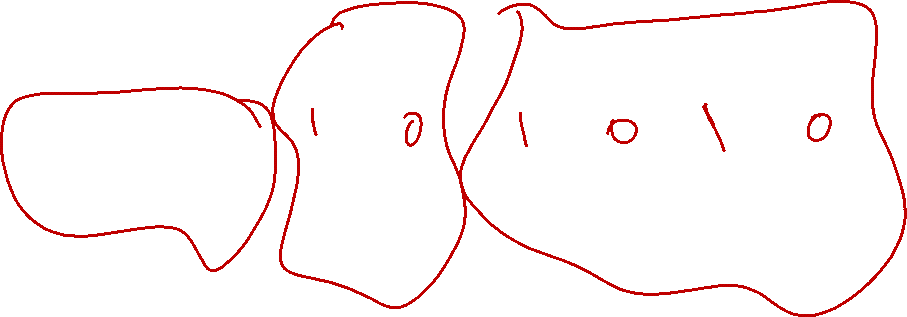 1 0 1 0 1 0